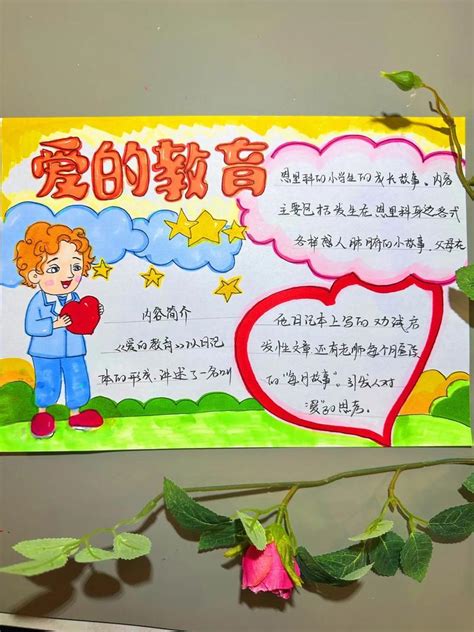 爱的教育
内容简介
《爱的教育》以日记
本的形式,讲述了一名叫
恩里科的小学生的成长故事。内容
主要包括发生在恩里科身边各式
各样感人肺腑的小故事,父母在
他日记本上写的劝诫启
发性文章还有老师每个月宣读
的“每月故事”。引发人对
“爱”的思考。